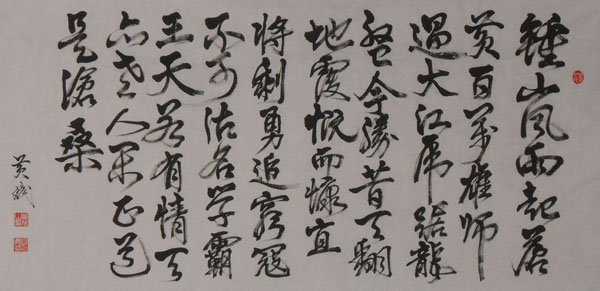 鍾山風雨起蒼
黄百萬雄师
過大江虎踞龍
盤今勝昔天翻
地覆慨而慷宜
将剩勇追窮寇
不可沽名学霸
王天若有情天
亦老人間正道
是滄桑
黄斌